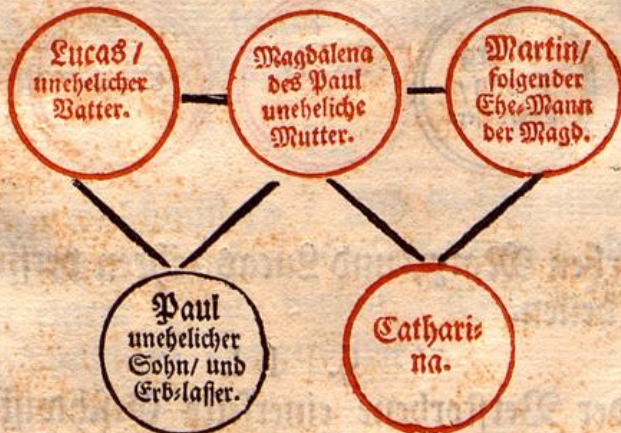 Lucas /
unehelicher
Vatter.
Magdalena
des Paul
uneheliche
Mutter.
Martin/
folgender
Ehe⸗Mann
der Magd.
Paul
unehelicher
Sohn/ und
Erb⸗lasser.
Cathari⸗
na.